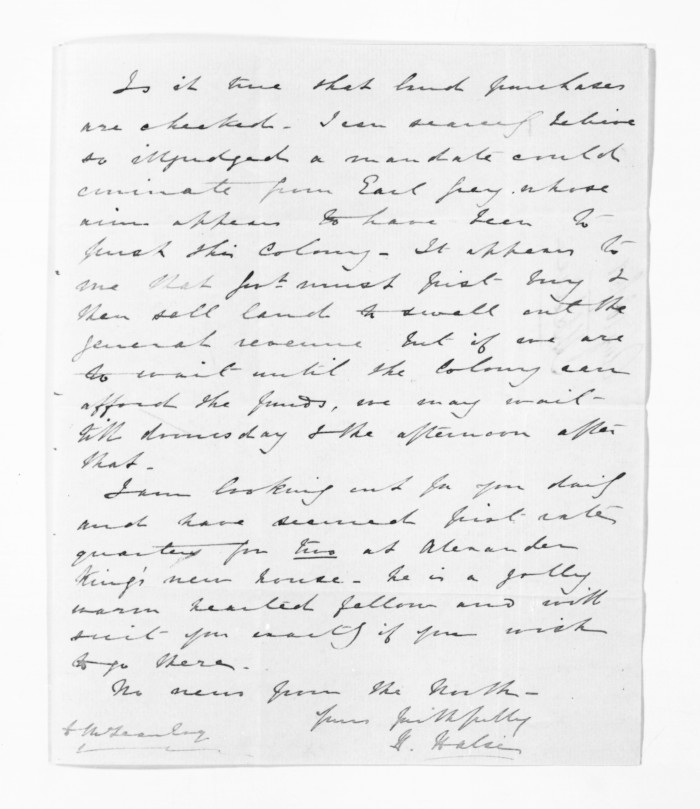 Is it true that land purchases
are checked - I can scarcely believe
so illjudged a mandate could
eminate from Earl Grey, whose
aim appears to have been to
push this Colony - It appears to
me that Govt must first buy &
then sell land to swell out the
general revenue but if we are
to wait until the Colony can
afford the funds, we may wait
till domesday & the afternoon after
that -
I am looking out for you daily
and have secured first rate
quarters for two at Alexander
King's new house - he is a jolly
warm hearted fellow and will
suit you exactly if you wish
to go there -
No news from the North -
Yours faithfully
H. Halse
D McLean Esq